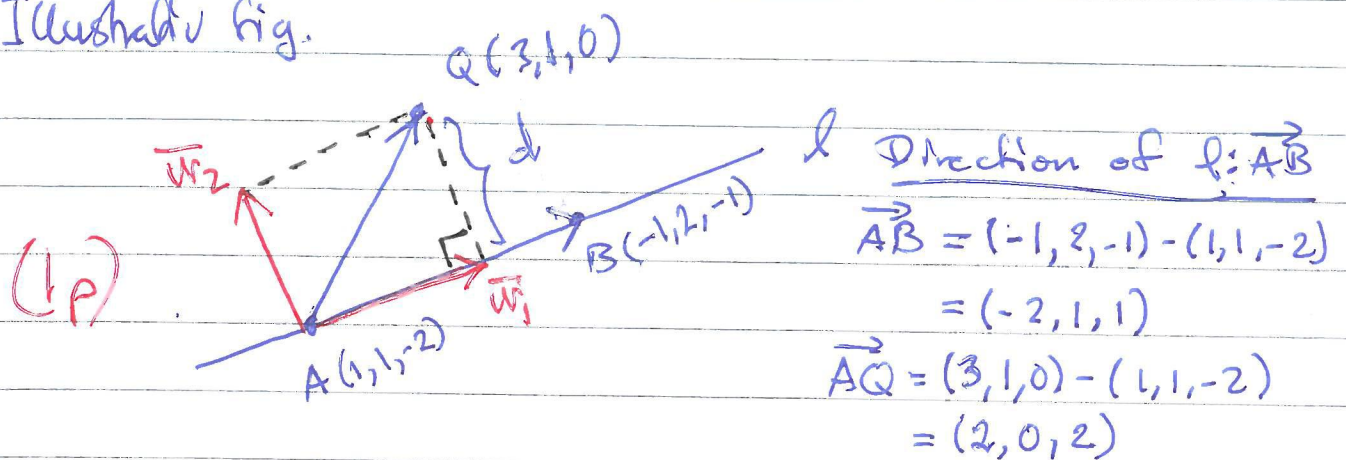 Illustrativ fig.
Q(3,1,0)
d
w̅₂
l
B(-1,2,-1)
w̅₁
(1p)
A(1,1,-2)
Direction of l: A⃗B⃗
A⃗B⃗ = (-1,2,-1)-(1,1,-2)
= (-2,1,1)
A⃗Q⃗ = (3,1,0)-(1,1,-2)
= (2,0,2)